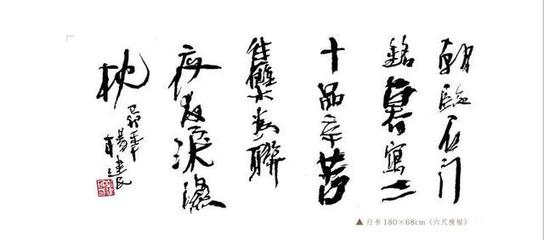 朝臨石门
銘暮寫二
十品辛苦
雧为聯
夜夜淚濕
枕
楊建民
▲ 行书 180×68cm（六尺横幅）